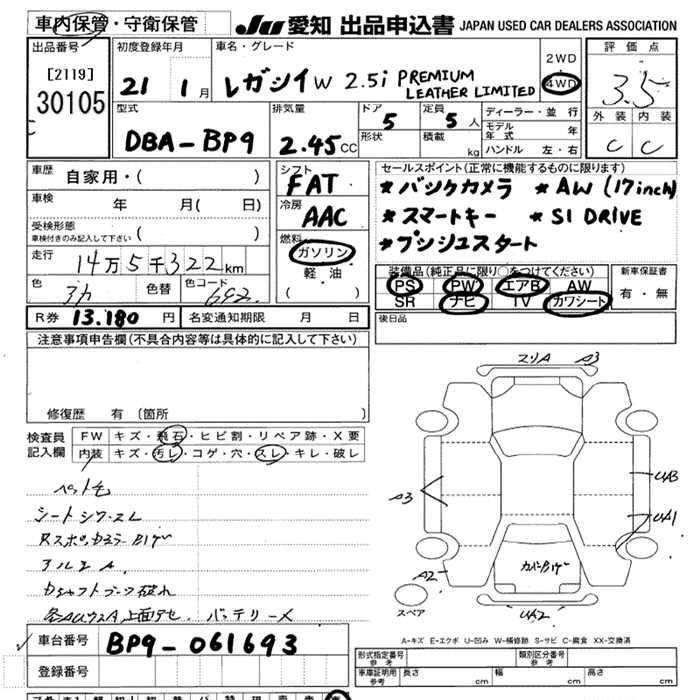 車内保管・守衛保管
JU 愛知 出品申込書 JAPAN USED CAR DEALERS ASSOCIATION
出品番号
[2119]
30105
初度登録年月
21 1月
車名・グレード
レガシイW 2.5i PREMIUM
LEATHER LIMITED
2WD
4WD
評価点
3.5
外装 内装
C C
型式
DBA-BP9
排気量
2.45CC
ドア
5
形状
定員
5人
積載
kg
ディーラー・並行
モデル年式 年
ハンドル 左・右
車歴 自家用・( )
車検 年 月( 日)
受検形態
車検付きのみ記入して下さい ( )
走行 14万5千322km
色 色替 色コード
シフト
FAT
冷房
AAC
燃料
ガソリン
軽・油
( )
セールスポイント(正常に機能するものに限ります)
*バックカメラ *AW(17inch)
*スマートキー *SI DRIVE
*プッシュスタート
装備品(純正品に限り○をつけてください)
PS PW エアB AW
SR ナビ TV カワシート
新車保証書
有・無
R券 13.180円 名変通知期限 月 日
後日品
注意事項申告欄(不具合内容等は具体的に記入して下さい)
修復歴 有(箇所
検査員
記入欄
FW キズ・飛石・ヒビ割・リペア跡・X要
内装 キズ・汚レ・コゲ・穴・スレ・キレ・破レ
シートシワ・スレ
アルミA
バッテリーX
A3
A3
UAB
UA1
A2
UA2
スペア
A-キズ E-エクボ U-凹み W-補修跡 S-サビ C-腐食 XX-交換済
車台番号 BP9-061693
登録番号
形式指定番号 参考
類別区分番号 参考
車庫証明用 参考 長さ cm 幅 cm 高さ cm